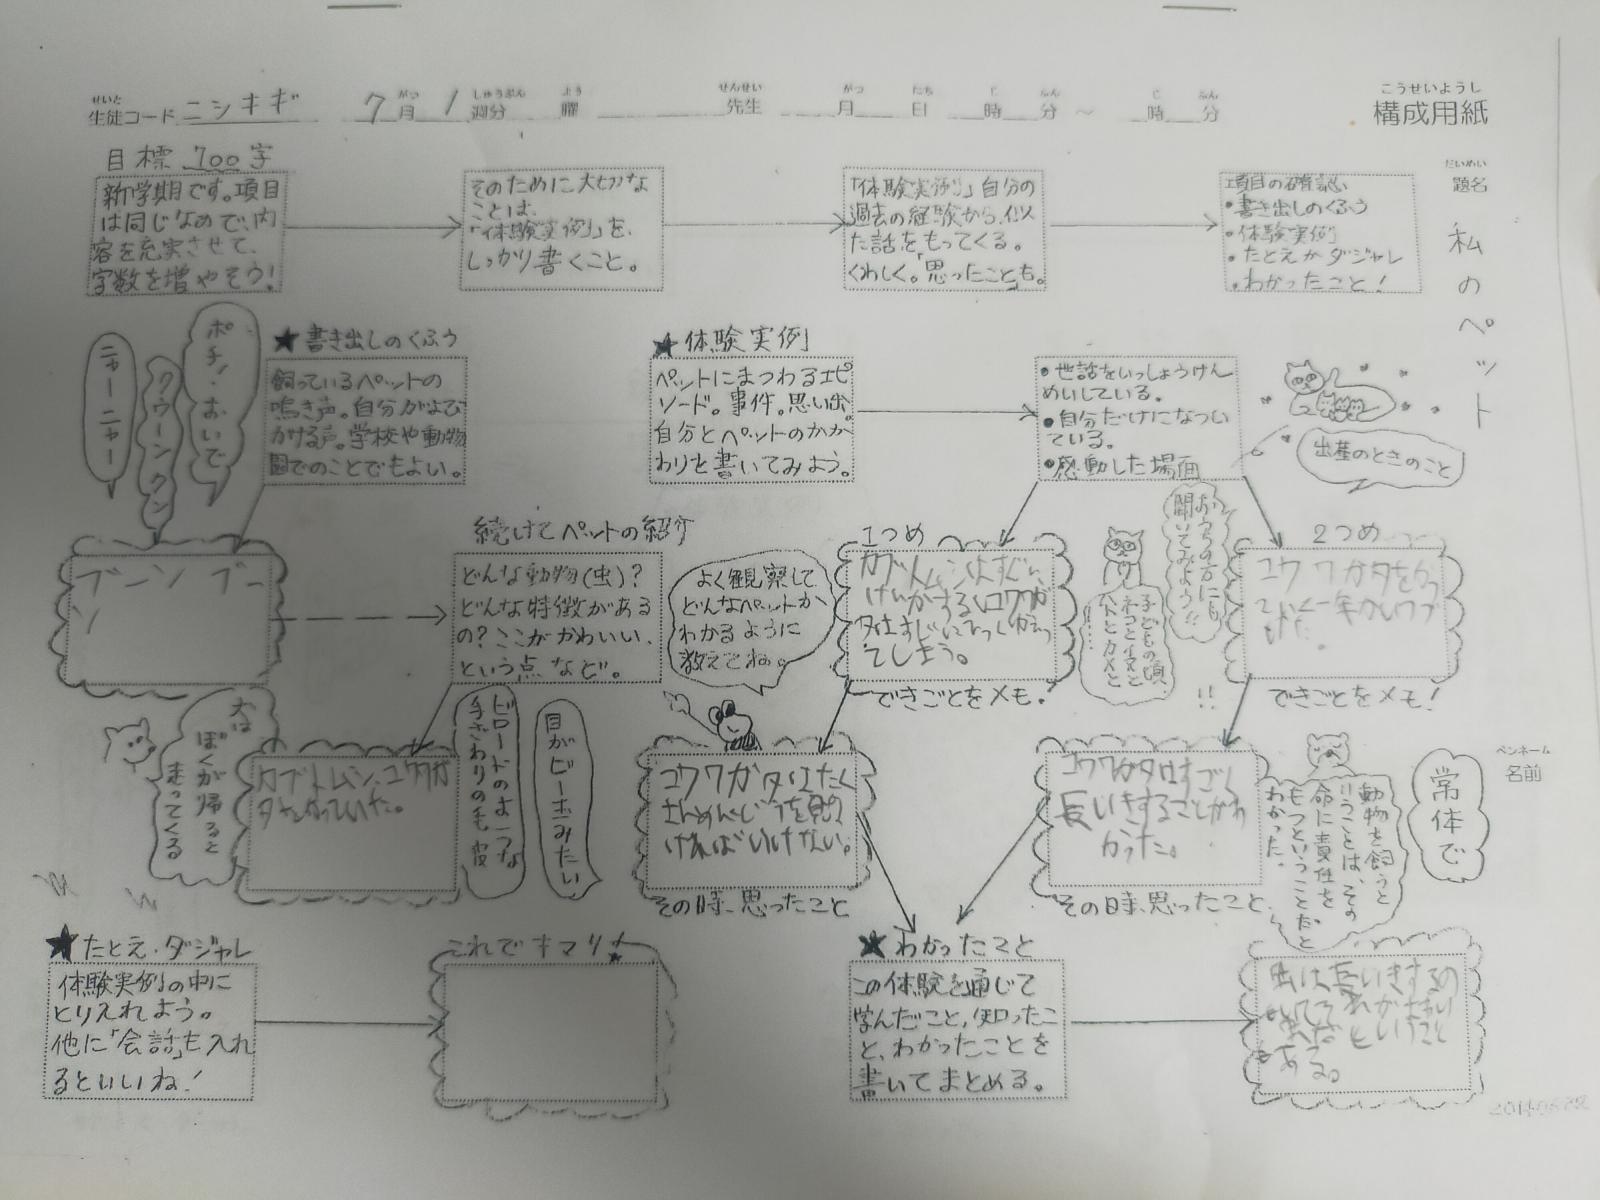 せいと
生徒コード ニシキギ 7月 1週分 曜 先生 月 日 時 分 ～ 時 分
がつ しゅうぶん よう せんせい がつ にち じ ふん じ ふん
こうせいようし
構成用紙
だいめい
題名
私のペット
目標 700字
新学期です。項目
は同じなので、内
容を充実させて、
字数を増やそう!
そのために大切な
ことは、
「体験実例」を、
しっかり書くこと。
「体験実例」自分の
過去の経験から、似
た話をもってくる。
くわしく。「思ったことも。
項目の確認
・書き出しのくふう
・体験実例
・たとえかダジャレ
・わかったこと!
ニャーニャー
クウーンクン
ポチ!おいで
★書き出しのくふう
飼っているペットの
鳴き声。自分がよび
かける声。学校や動物
園でのことでもよい。
★体験実例
ペットにまつわるエピ
ソード。事件。思い出。
自分とペットのかか
わりを書いてみよう。
・世話をいっしょうけん
めいしている。
・自分だけになつい
ている。
・感動した場面
出産のときのこと
おうちの方にも
聞いてみよう!!
子どもの頃、
ネコとイヌと
ハトとカメと
……
!!
ブーン ブー
ン
続けてペットの紹介
どんな動物(虫)?
どんな特徴がある
の?ここがかわいい、
という点など。
よく観察して
どんなペットか
わかるように
教えてね。
1つめ
カブトムシはすぐに
けんかする、コクワガ
タはすぐにひっくりかえっ
てしまう。
できごとをメモ!
2つめ
コクワガタをかっ
できごとをメモ!
犬は
ぼくが帰ると
走ってくる
カブトムシ、コクワガ
タをかっていた。
ビロードのような
手ざわりの毛皮
目がビー玉みたい
コクワガタはたく
さんめんどうを見な
ければいけない。
その時、思ったこと
コクワガタはすごく
長いきすることがわ
かった。
その時、思ったこと
動物を飼うと
いうことは、その
命に責任を
もつということだと
わかった。
常体で
ペンネーム
名前
★たとえ・ダジャレ
体験実例の中に
とりいれよう。
他に「会話」も入れ
るといいね!
これでキマリ!
★わかったこと
この体験を通じて
学んだこと、知ったこ
と、わかったことを
書いてまとめる。
虫は長いきするの
もある。